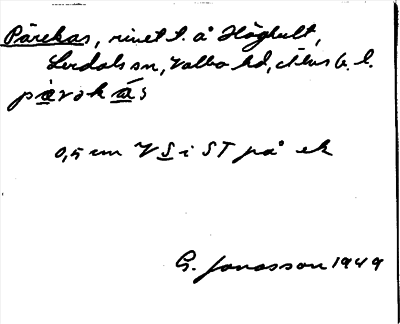 Pärekas, rivet t. å Höghult,
Lerdals sn, Valbo hd, Älvs b. l.
pærəkás
0,5 cm V S i ST på ek
G. Jonasson 1949